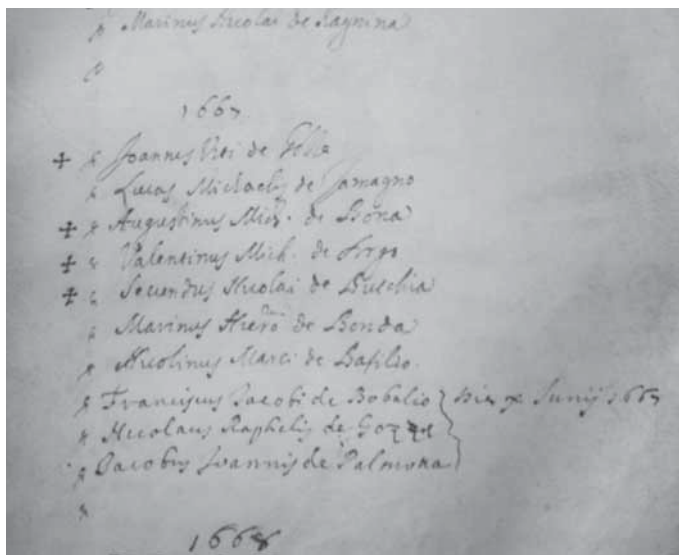 Marinus Nicolai de Ragnina
1667
Joannes de
Lucas Michaelis de Jamagno
Augustinus de Bona
Valentinus Mich. de
Secundus Nicolai de Buschia
Marinus Hiero de Bonda
Nicolinus Marci de Basilio.
Franciscus Jacobi de Bobalio Junij 1667
Nicolaus Raphelis de Gozze
Jacobus Joannis de Palmota
1668